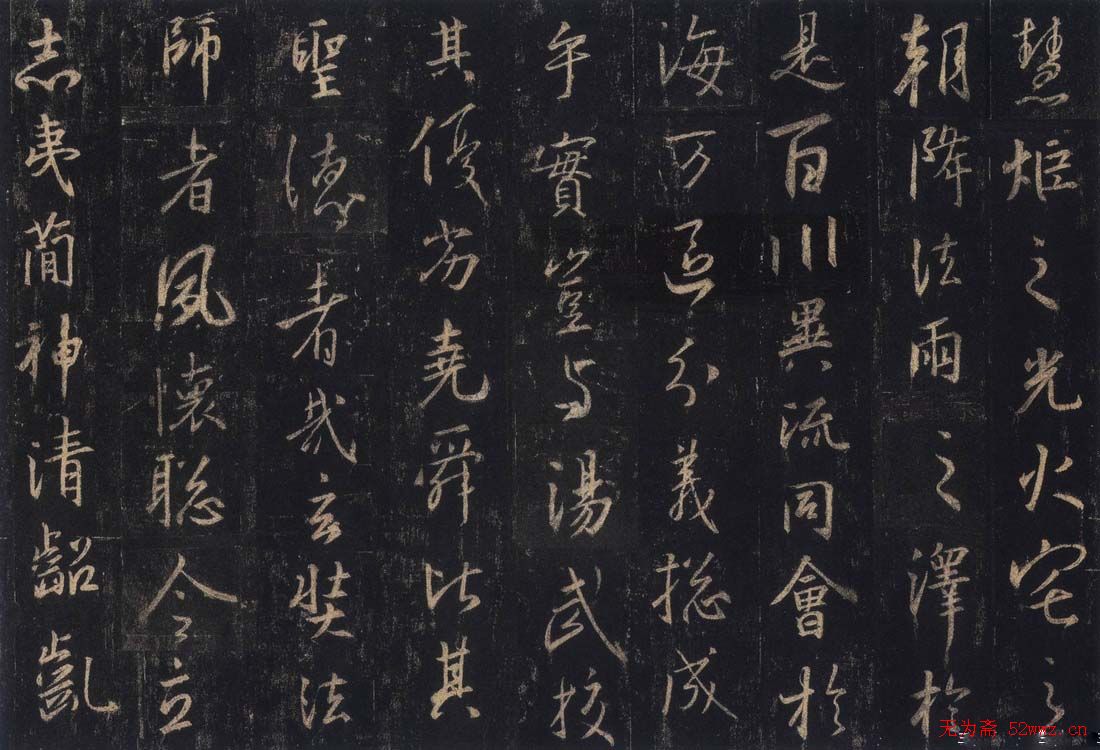 慧炬之光火宅之
朝降法雨之澤於
是百川異流同會於
海万區分義揔成
乎實豈与湯武校
其優劣堯舜比其
聖德者哉玄奘法
師者夙懷聰令立
志夷簡神清齠齔
无为斋 52wwz.cn